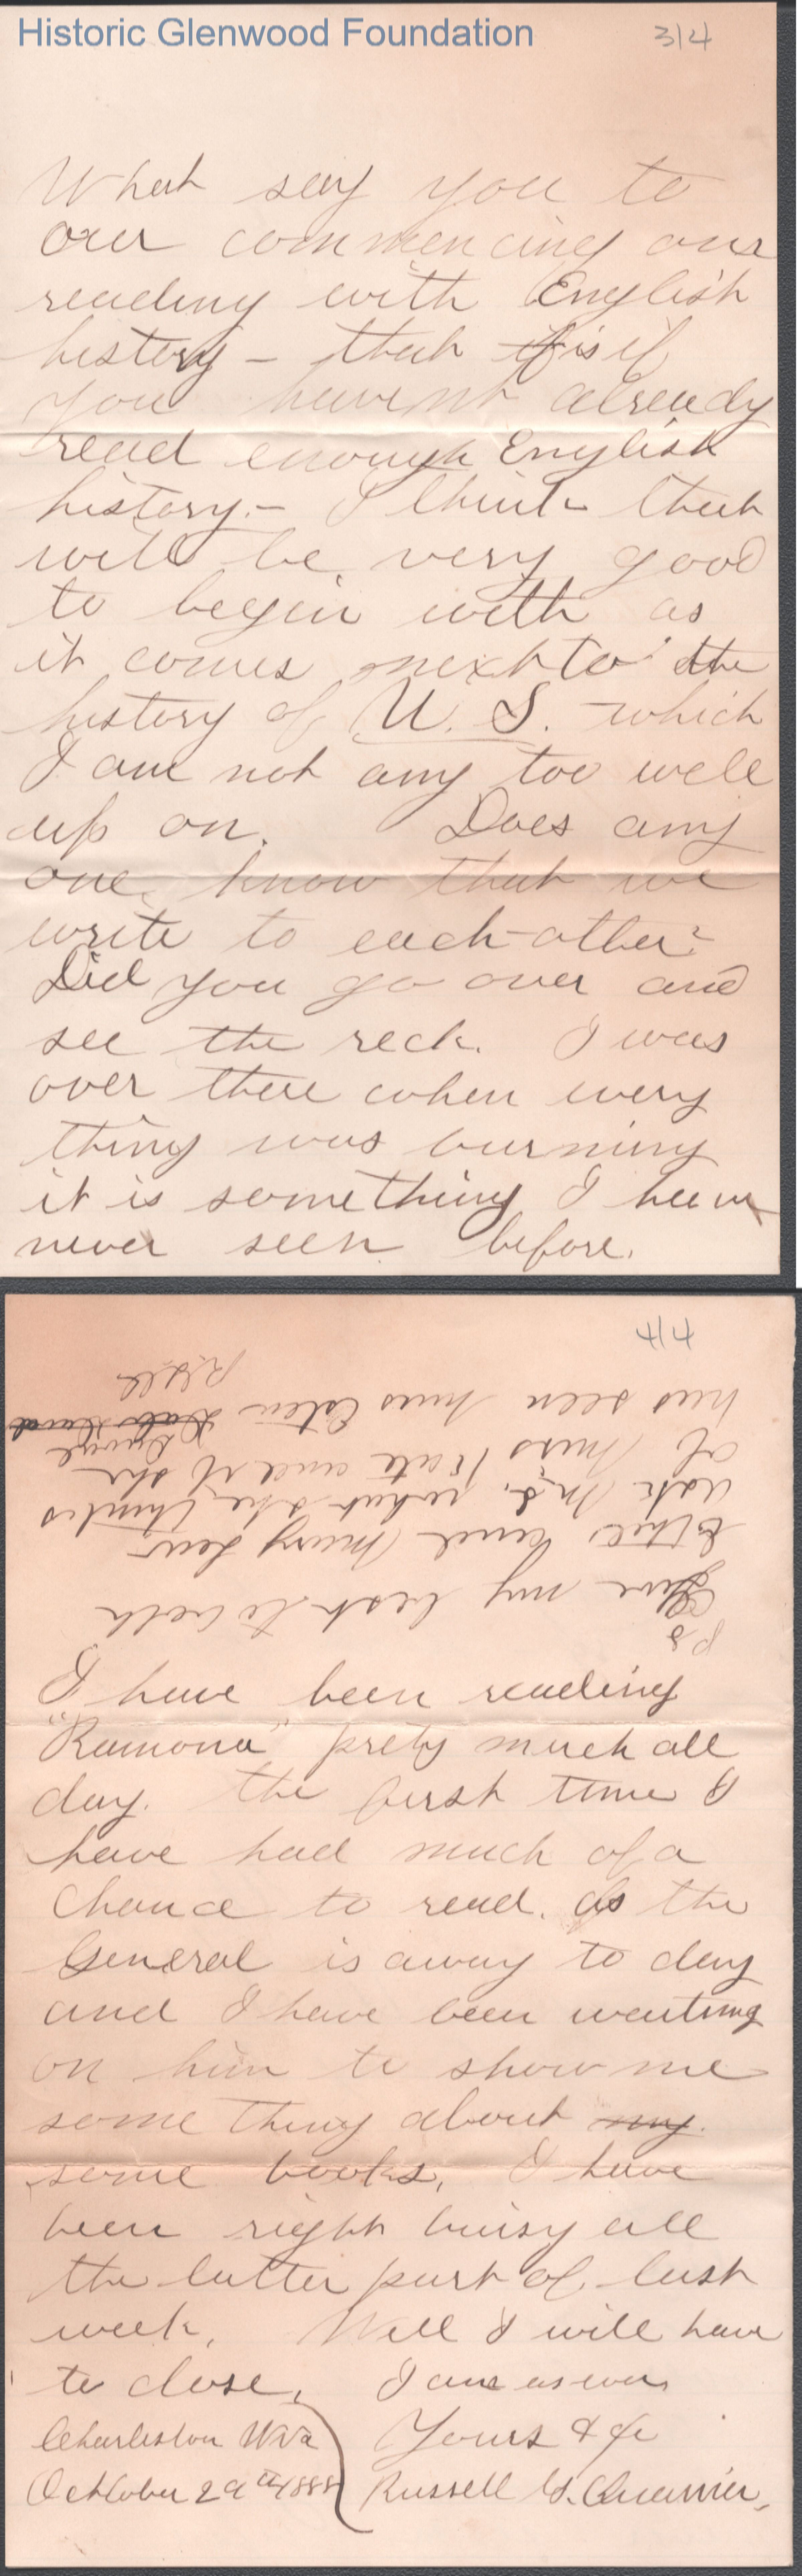 Historic Glenwood Foundation
3/4
What say you to
our commencing our
reading with English
history – that is if
you havent already
read enough English
history.– I think that
will be very good
to begin with as
it comes next to the
history of U. S. – which
I am not any too well
up on. Does any
one know that we
write to each-other?
Did you go over and
see the reck. I was
over there when every
thing was burning
it is something I have
never seen before.
4/4
I have been reading
"Ramona" prety much all
day. the first time I
have had much of a
chance to read. as the
General is away to day
and I have been wanting
on him to show me
some thing about my
some books, I have
been right buisy all
the latter part of last
week. Well I will have
to close, I am as ever
Yours &c
Charleston W Va
October 29th 1888
Russell G. Quarrier,
PS
Give my best to both
Ethel and Mary Lew
ask M.L. what she thinks
of Miss Kate and if she
has seen Miss Estes